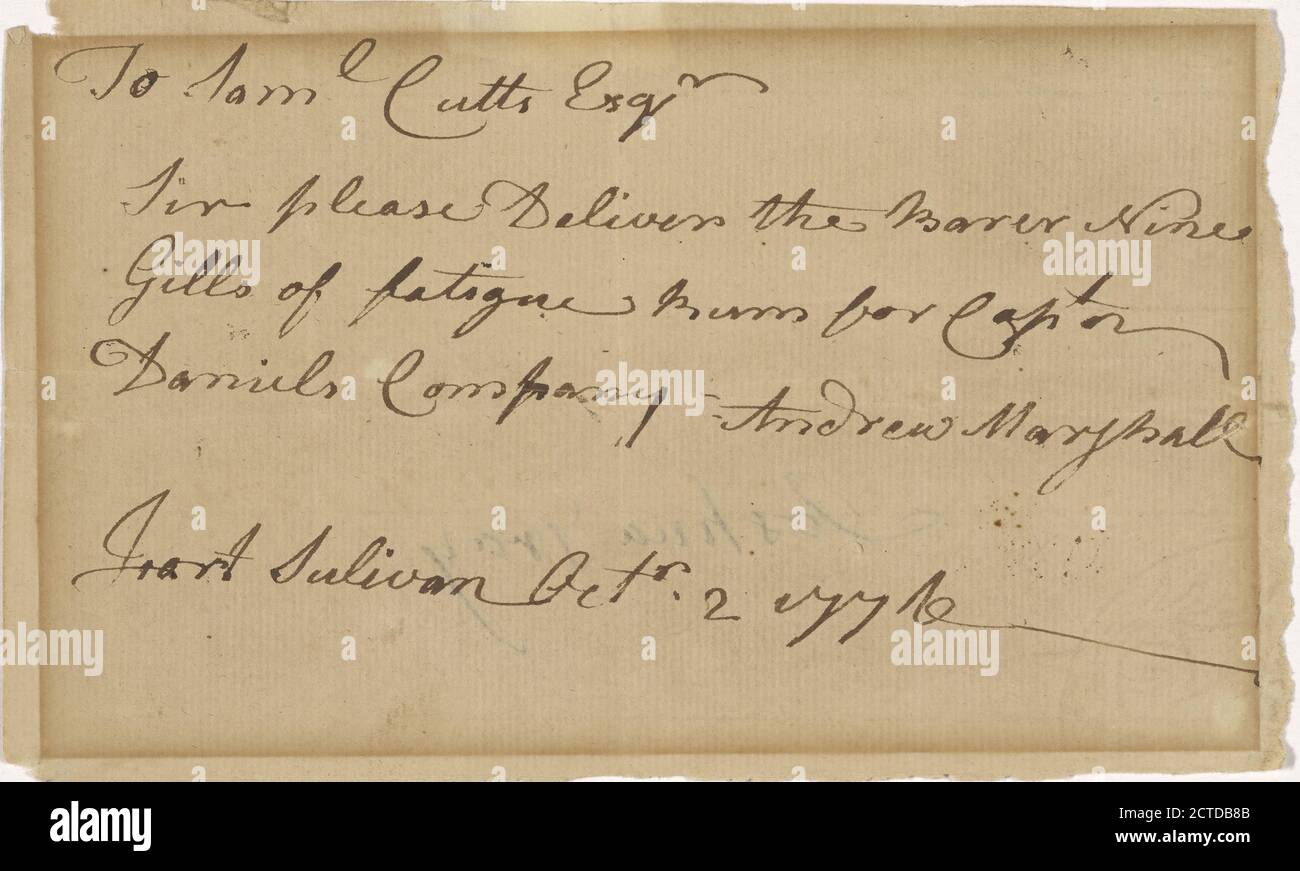 To Sam^l Cutts Esq^r
Sir please Deliver the Barer Nine
Gills of fatigue Rum for Capt^n
Daniels Company - Andrew Marshall
Foart Sulivan Oct^r. 2 1776
alamy
Image ID: 2CTDB8B
www.alamy.com